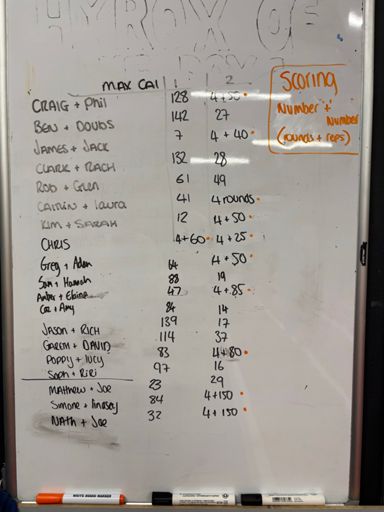 HYROX OF
MAX CAL 1 2
CRAIG + Phil 128 4+50
BEN + DOVDS 142 27
JAMES + JACK 7 4 + 40
CLARK + RACH 132 28
ROB + Glen 61 49
CAITLIN + Laura 41 4 rounds
KIM + SARAH 12 4 + 50
CHRIS 4+60 4 + 25
Greg + Adam 64 4 + 50
Sam + Hannah 88 19
Amber + Elaine 47 4 + 85
+ Amy 84 14
JASON + RICH 139 17
GARETH + DAVID 114 37
POPPY + LUCY 83 4+80
Soph + RiRi 97 16
MATTHEW + Joe 23 29
Simone + lindsey 84 4+150
NATH + Joe 32 4 + 150
Scoring
Number '+' Number
(rounds + reps)
WHITE BOARD MARKER